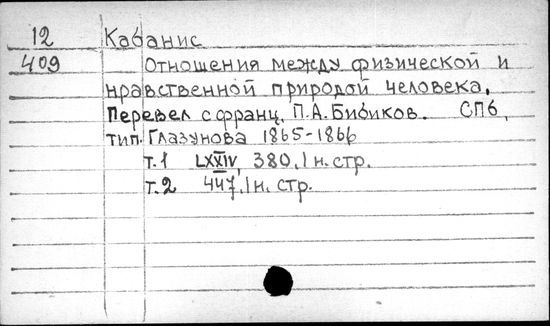 12 Кабанис
409 Отношения между физической и
нравственной природой человека.
Перевел с франц. П.А.Бибиков. СПб,
тип. Глазунова 1865-1866
т.1 LXXIV, 380, 1 н. стр.
т.2 447, 1 н. стр.